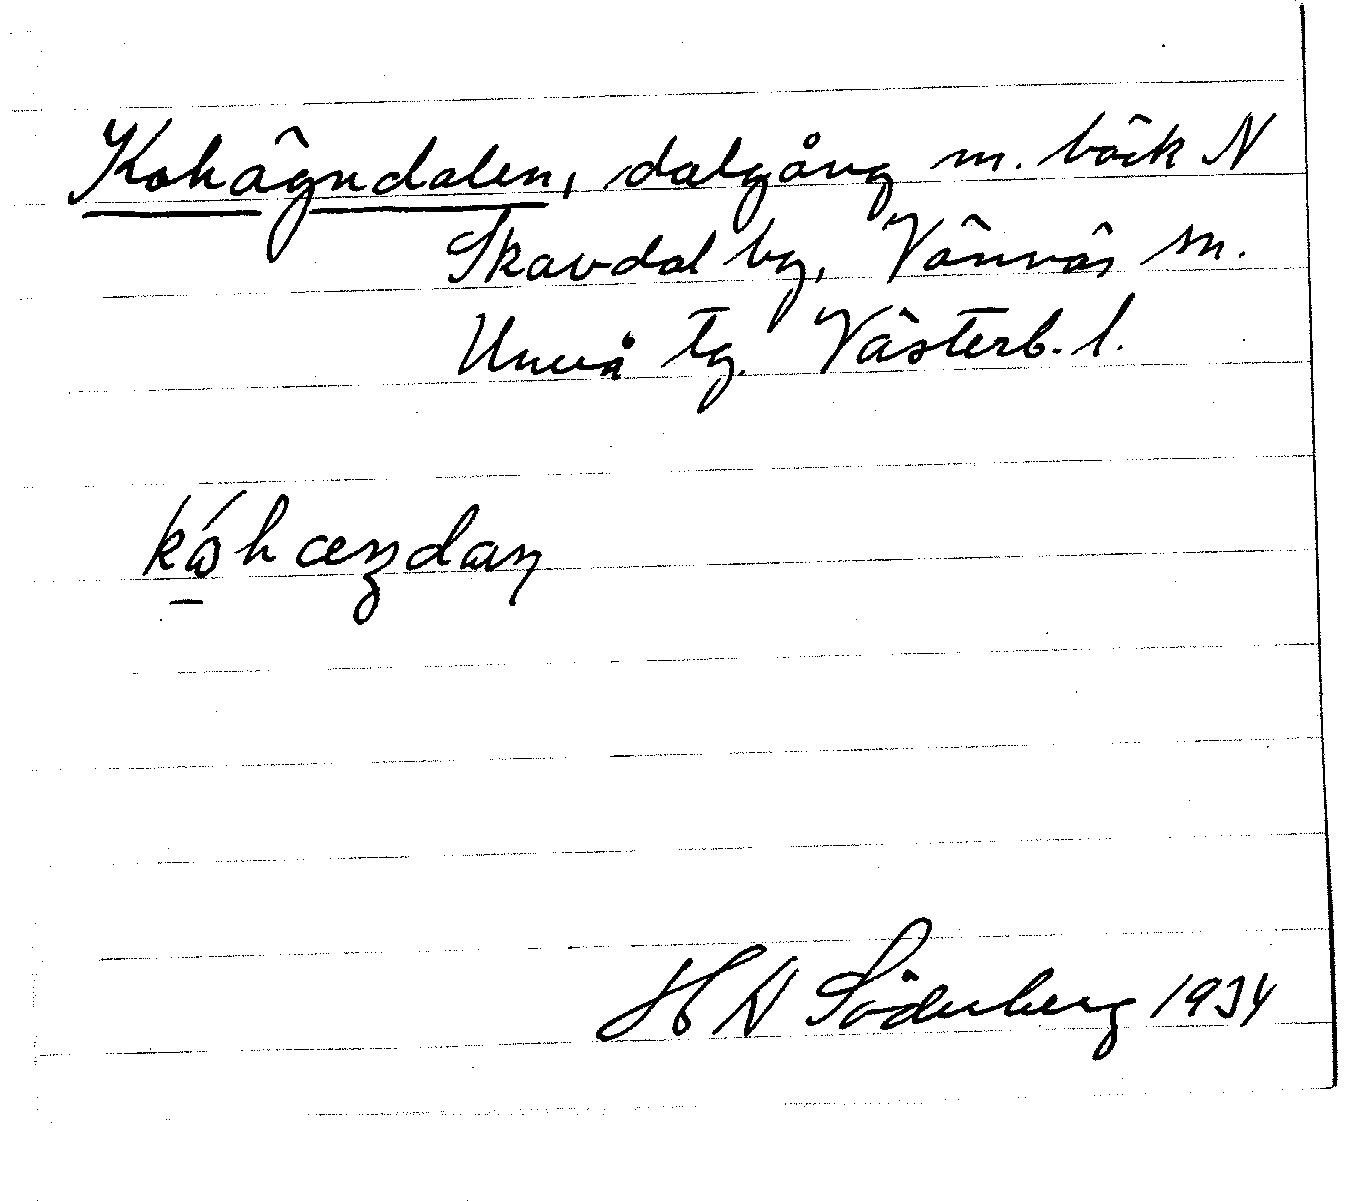 Kohägndalen, dalgång m. bäck N
Skavdal by, Vännäs sn.
Umeå tg. Västerb. l.
H N Söderberg 1934